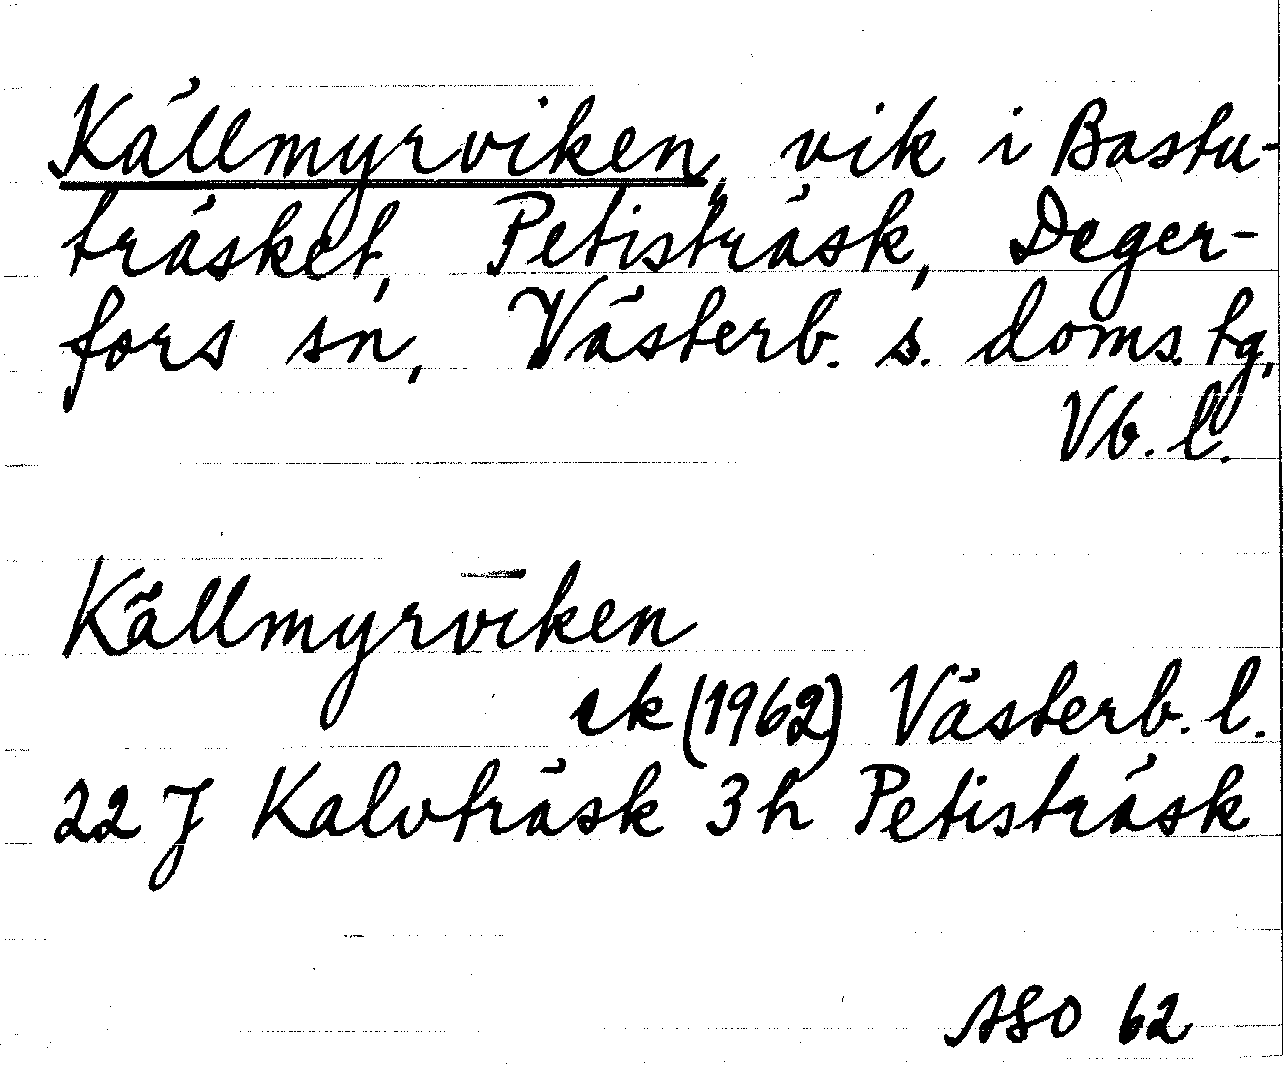 Källmyrviken, vik i Bastu-
träsket, Petisträsk, Deger-
fors sn, Västerb. s. doms. tg,
Vb. l.
Källmyrviken
ek (1962) Västerb. l.
22 J Kalvträsk 3 h Petisträsk
ASO 62